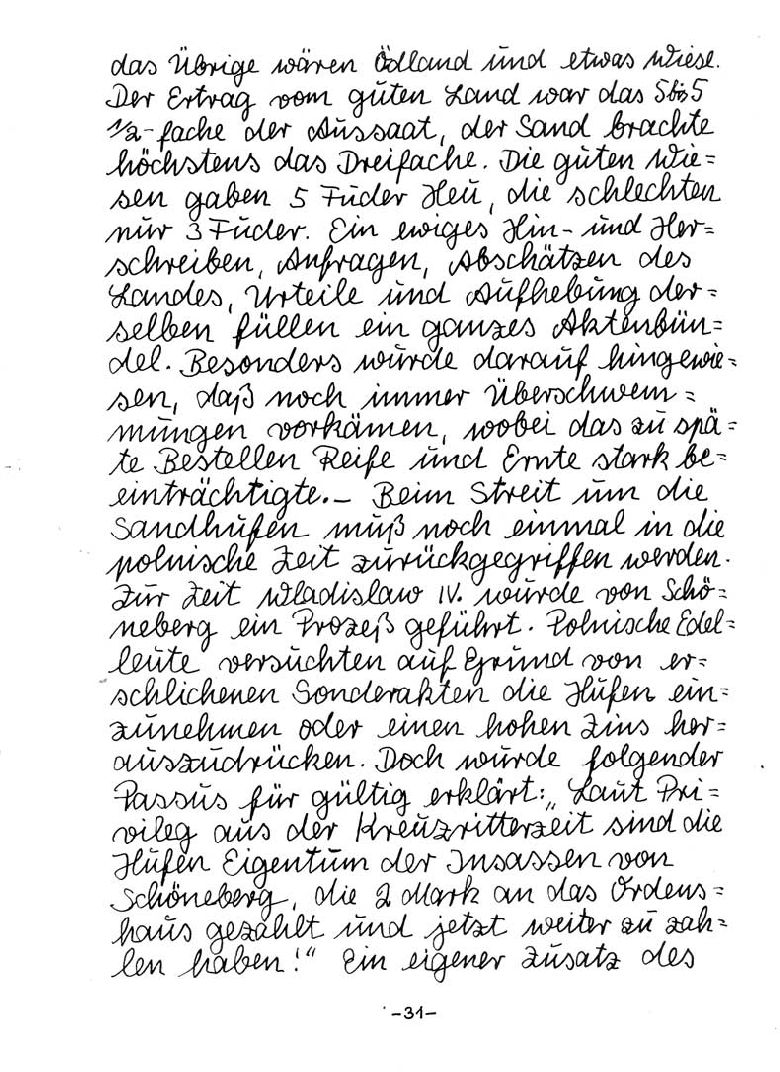 das Übrige wären Ödland und etwas Wiese.
Der Ertrag vom guten Land war das 5 bis 5
1/2-fache der Aussaat, der Sand brachte
höchstens das Dreifache. Die guten Wie=
sen gaben 5 Fuder Heu, die schlechten
nur 3 Fuder. Ein ewiges Hin- und Her=
schreiben, Anfragen, Abschätzen des
Landes, Urteile und Aufhebung der=
selben füllen ein ganzes Aktenbün=
del. Besonders wurde darauf hingewie=
sen, daß noch immer Überschwem=
mungen vorkämen, wobei das zu spä=
te Bestellen Reife und Ernte stark be=
einträchtigte.– Beim Streit um die
Sandhufen muß noch einmal in die
polnische Zeit zurückgegriffen werden.
Zur Zeit Wladislaw IV. wurde von Schö=
neberg ein Prozeß geführt. Polnische Edel=
leute versuchten auf Grund von er=
schlichenen Sonderakten die Hufen ein=
zunehmen oder einen hohen Zins her=
auszudrücken. Doch wurde folgender
Passus für gültig erklärt: „Laut Pri=
vileg aus der Kreuzritterzeit sind die
Hufen Eigentum der Insassen von
Schöneberg, die 2 Mark an das Ordens=
haus gezahlt und jetzt weiter zu zah=
len haben!“ Ein eigener Zusatz des
-31-